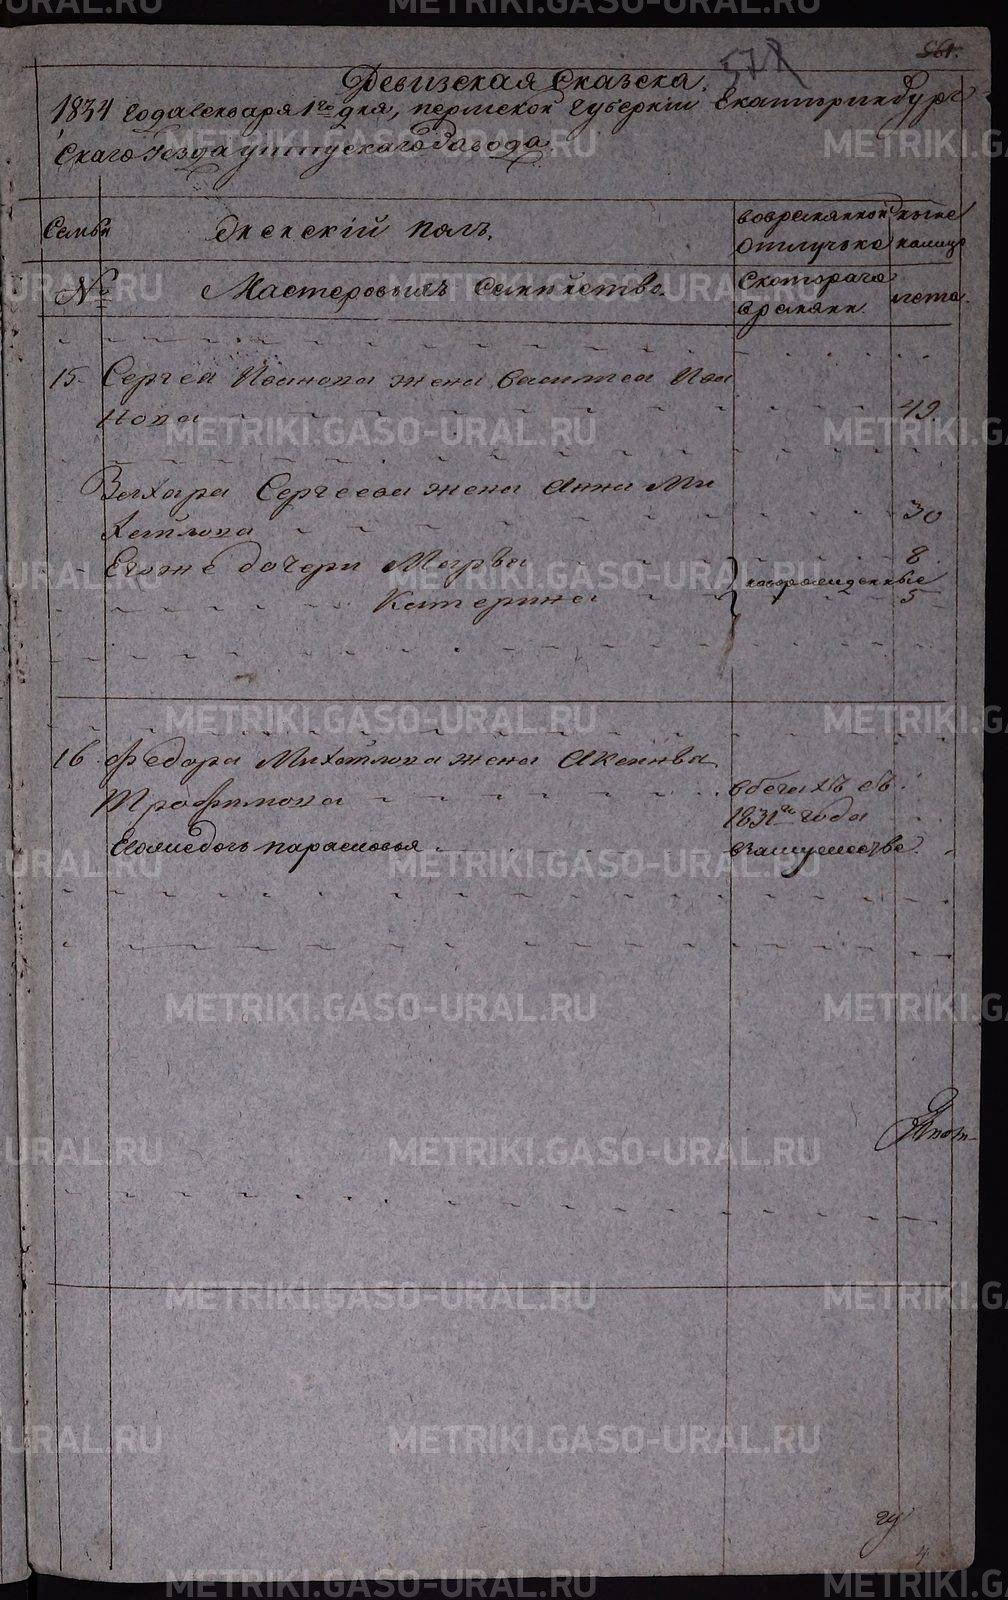 561.
577
Ревизская Сказка.
1834 года генваря 1го дня, пермской губернии Екатеринбург
скаго уезда уткускаго Завода
Семьи
Женский полъ.
вовременной
отлучке
ныне
налицо
№
Мастеровыхъ семейство.
Скотораго
времяни.
лета.
15. Сергея Иванова жена Василиса Ива
нова
49.
Захара Сергеева жена Анна Ми
хайлова
30
Егоже дочери Марфа
8.
новорожденные
Катерина
5
16 Федора Михайлова жена Аксинья
Трофимова
вбегахъ съ
1831го года
Егожедочь парасковья
взамужестве.
METRIKI.GASO-URAL.RU